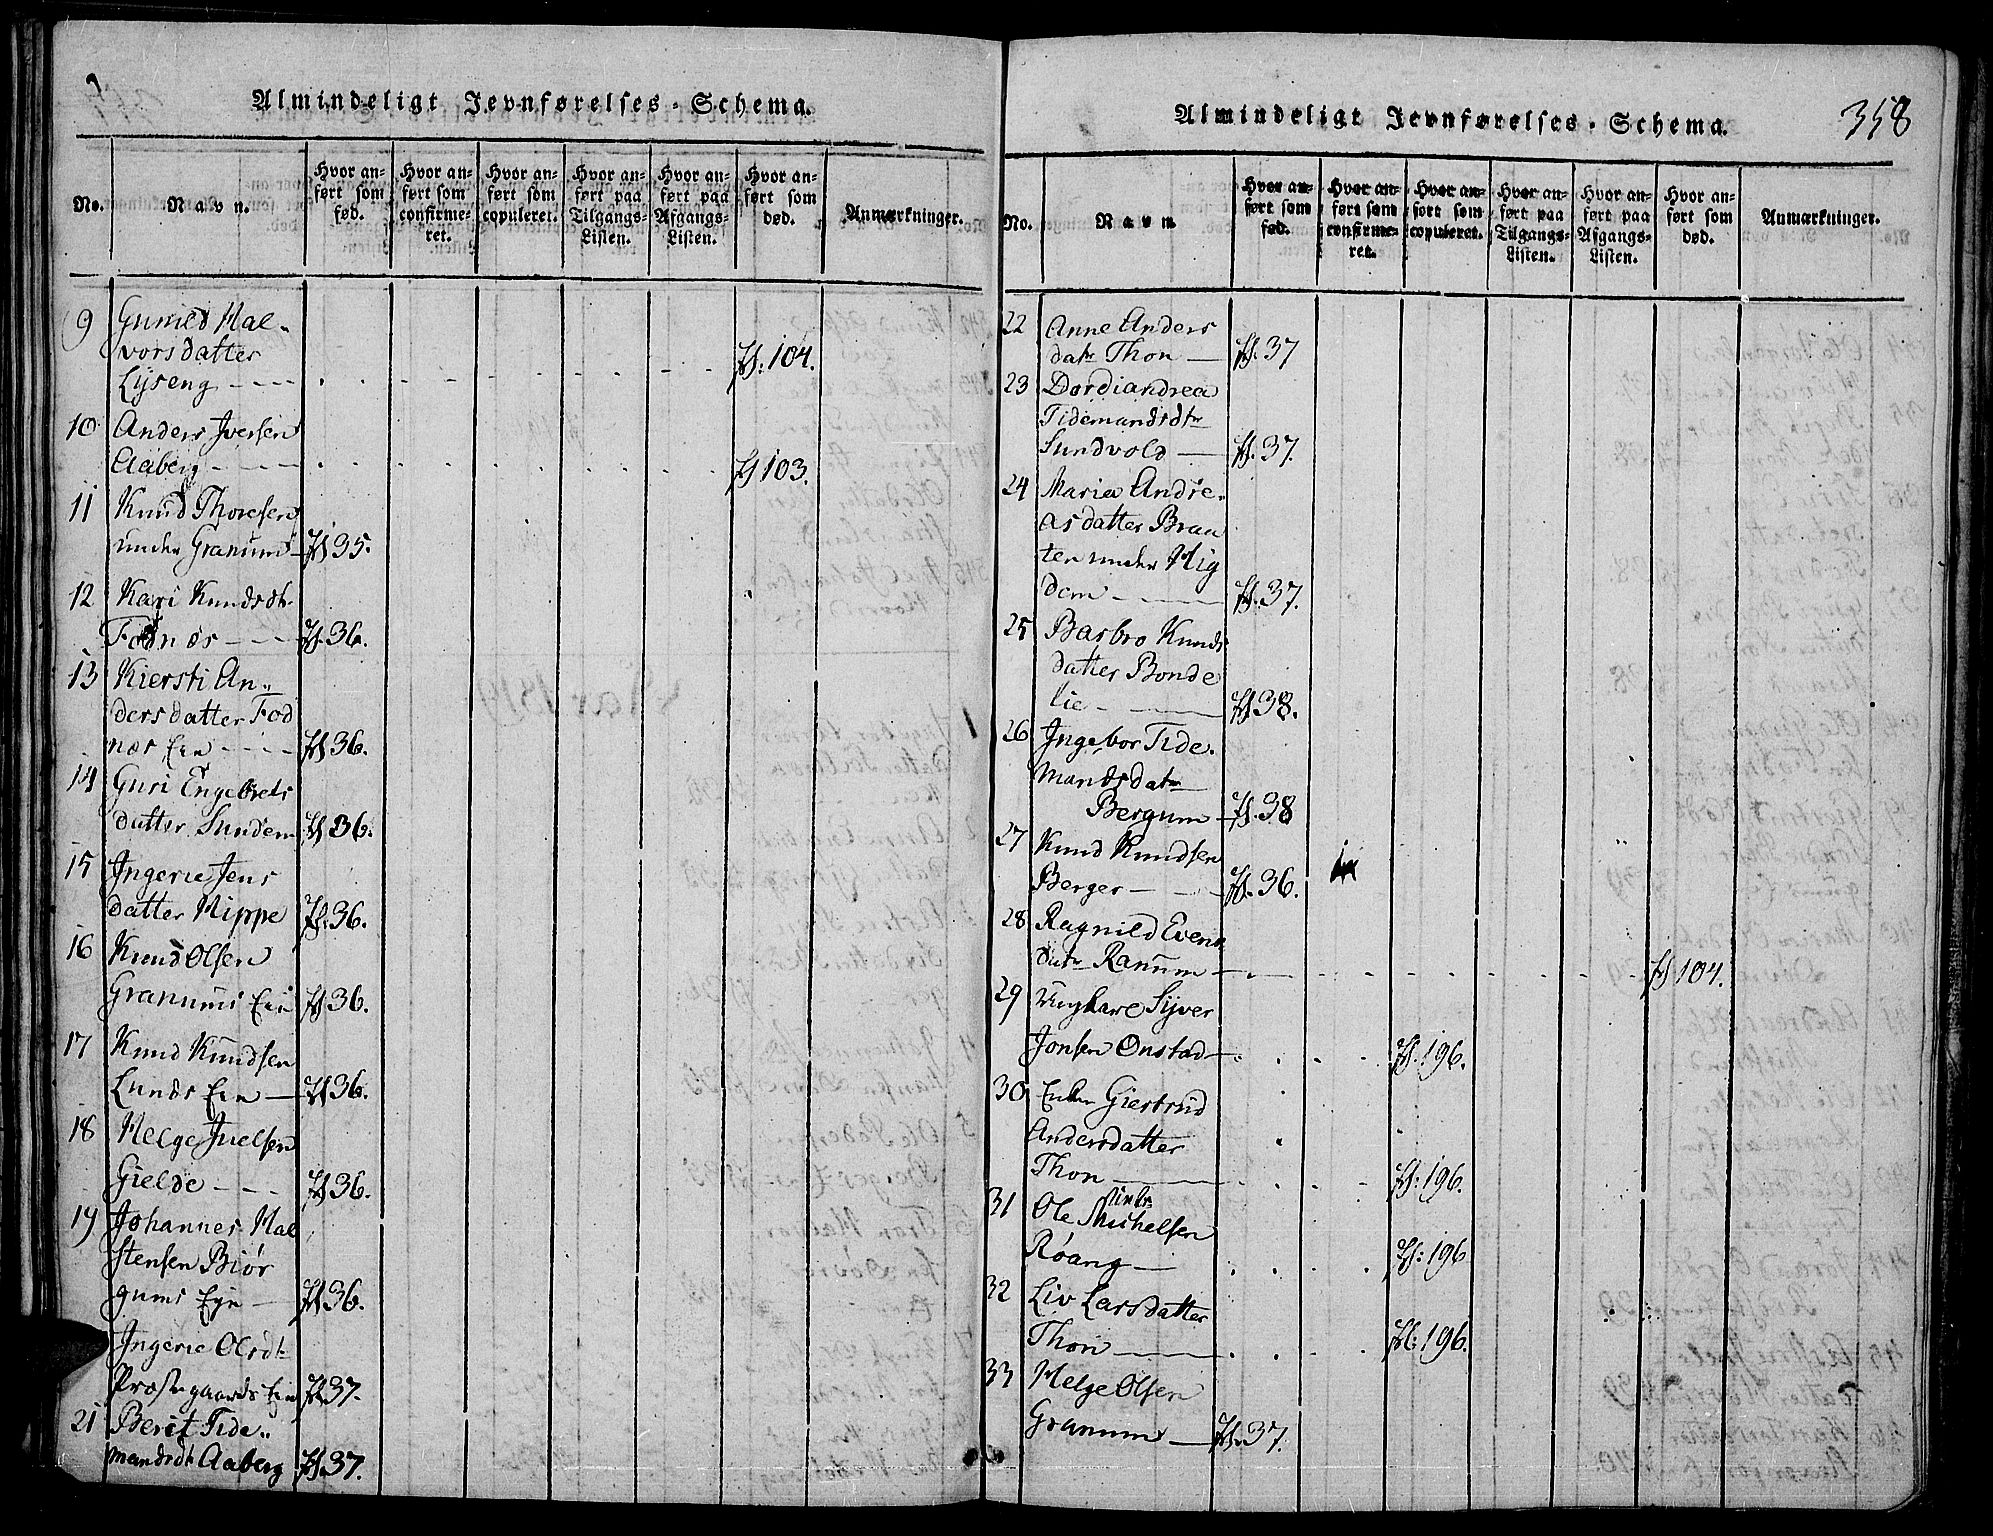 Almindeligt Jevnførelses-Schema.
No.
Navn.
Hvor anført som fød.
Hvor anført som confirmeret.
Hvor anført som copuleret.
Hvor anført paa Tilgangs-Listen.
Hvor anført paa Afgangs-Listen.
Hvor anført som død.
Anmærkninger.
9 Gunild Hal-
vorsdatter
Lyseng - - - 104.
10 Anders Iversen
Aaberg - - - 103.
11 Knud Thoresen
under Granum - 35.
12 Kari Knudsdtr
Fodnæs - - - 36.
13 Kiersti An-
dersdatter Fod
næs Eie - - - 36.
14 Guri Engebrets
datter Sundem 36.
15 Ingerie Jens
datter Hippe 36.
16 Knud Olsen
Granums Eie 36.
17 Knud Knudsen
Lunds Eie - 36.
18 Helge Juelsen
Gielde - - - 36.
19 Johannes Hal
stensen Biør
gums Eje - 36.
Ingerie Olsdtr
Præstegaards Eie 37.
21 Berit Tide-
mandsdtr Aaberg 37.
Almindeligt Jevnførelses-Schema.
358
No.
Navn.
Hvor anført som fød.
Hvor anført som confirmeret.
Hvor anført som copuleret.
Hvor anført paa Tilgangs-Listen.
Hvor anført paa Afgangs-Listen.
Hvor anført som død.
Anmærkninger.
22 Anne Anders
datr Thon - 37
23 Dordiandrea
Tidemandsdtr
Sundvold - 37.
24 Maria Andre-
asdatter Brau
ten under Hig
dem - - - 37.
25 Barbro Knuds
datter Bonde
lie - - - 38.
26 Ingebor Tide-
mandsdatr
Bergum - 38
27 Knud Knudsen
Berger - - - 36.
28 Ragnild Evens
datr Ranum - 104.
29 Ungkarl Syver
Jonsen Onstad - 196.
30 Enke Giertrud
Andersdatter
Thon - - - 196.
31 Ole Michelsen
Røang - 196
32 Liv Larsdatter
Thon - - - 196.
33 Helge Olsen
Granum - 37.